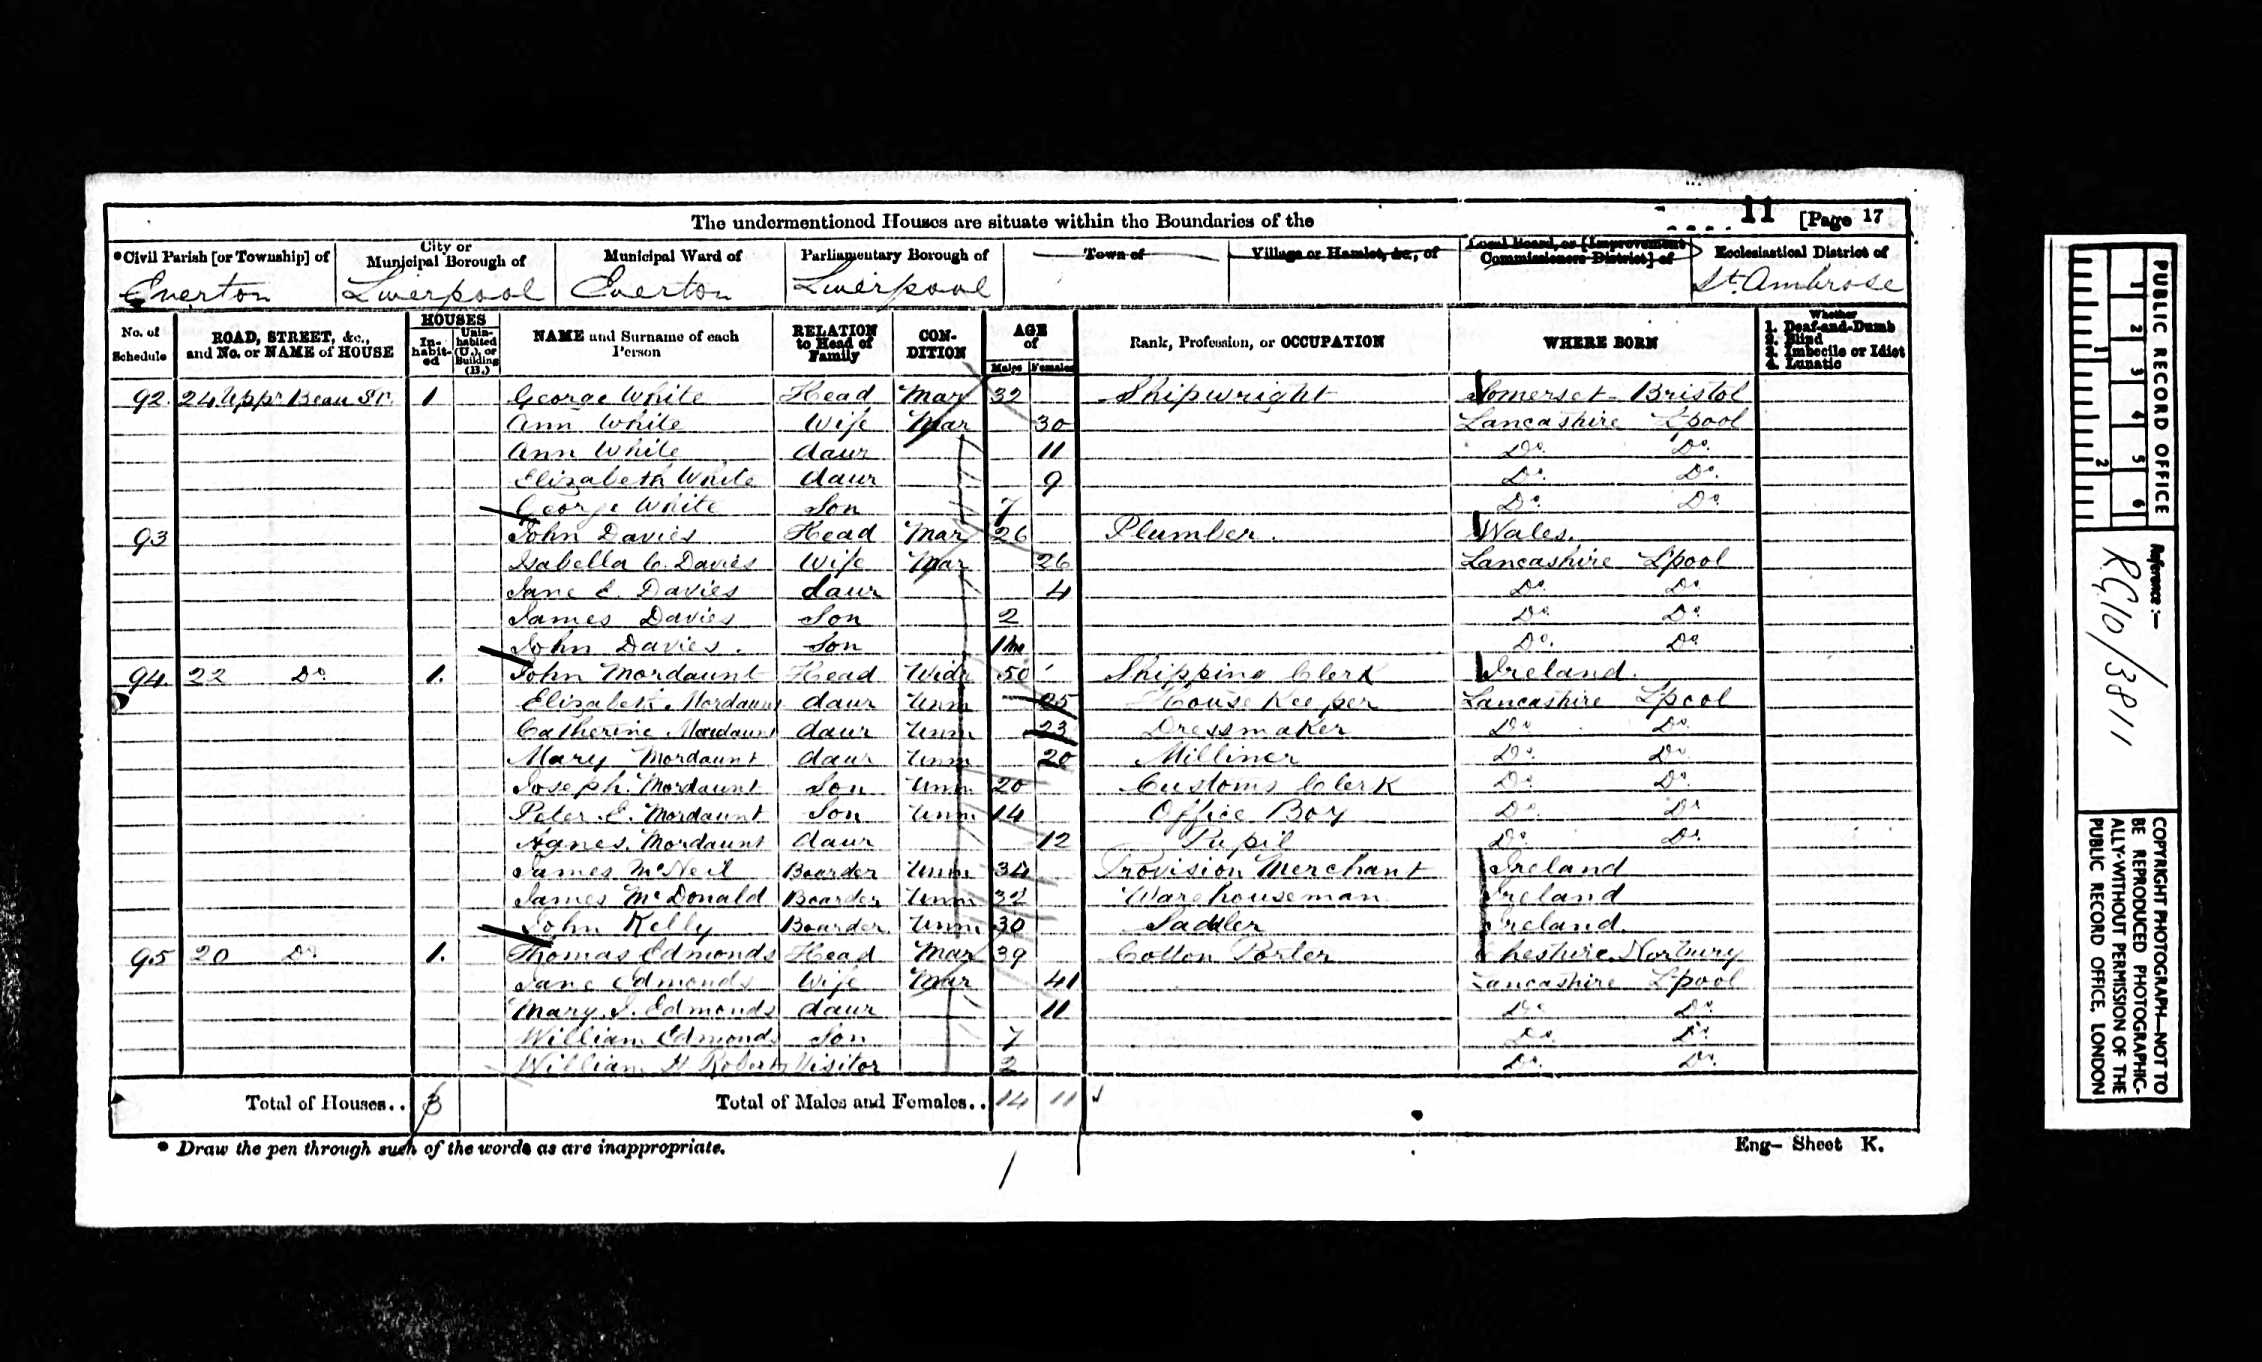 The undermentioned Houses are situate within the Boundaries of the 11 [Page 17
*Civil Parish [or Township] of City or Municipal Borough of Municipal Ward of Parliamentary Borough of Town of Village or Hamlet, &c., of Local Board, or [Improvement Commissioners District] of Ecclesiastical District of
Everton Liverpool Everton Liverpool St. Ambrose
No. of Schedule ROAD, STREET, &c., and No. or NAME of HOUSE HOUSES Inhabited Uninhabited (U.), or Building (B.) NAME and Surname of each Person RELATION to Head of Family CONDITION AGE of Males Females Rank, Profession, or OCCUPATION WHERE BORN Whether 1. Deaf-and-Dumb 2. Blind 3. Imbecile or Idiot 4. Lunatic
92 24 Uppr Beau St. 1 George White Head Mar 32 Shipwright Somerset Bristol
Ann White Wife Mar 30 Lancashire L'pool
Ann White daur 11 Do. Do.
Elizabeth White daur 9 Do. Do.
George White Son 7 Do. Do.
93 John Davies Head Mar 26 Plumber. Wales.
Isabella C. Davies Wife Mar 26 Lancashire L'pool
Jane E. Davies daur 4 Do. Do.
James Davies Son 2 Do. Do.
John Davies. Son 1m Do. Do.
94. 22 Do. 1. John Mordaunt Head Widr 50 Shipping Clerk Ireland.
Elizabeth Mordaunt daur Unm 25 House Keeper Lancashire L'pool
Catherine Mordaunt daur Unm 23 Dressmaker Do. Do.
Mary Mordaunt daur Unm 20 Milliner Do. Do.
Joseph Mordaunt Son Unm 20 Customs Clerk Do. Do.
Peter E. Mordaunt Son Unm 14 Office Boy Do. Do.
Agnes Mordaunt daur 12 Pupil Do. Do.
James McNeil Boarder Unm 34 Provision Merchant Ireland
James McDonald Boarder Unm 32 Warehouseman Ireland
John Kelly Boarder Unm 30 Saddler Ireland.
95 20 Do. 1. Thomas Edmonds Head Mar 39 Cotton Porter Cheshire Norbury
Jane Edmonds Wife Mar 41 Lancashire L'pool
Mary J. Edmonds daur 11 Do. Do.
William Edmonds Son 7 Do. Do.
William H Roberts Visitor 2 Do. Do.
Total of Houses.. 3 Total of Males and Females.. 14 11
* Draw the pen through such of the words as are inappropriate.
Eng- Sheet K.
PUBLIC RECORD OFFICE
1 2 3 4 5 6
1 2
Reference:-
RG10/3811
COPYRIGHT PHOTOGRAPH—NOT TO
BE REPRODUCED PHOTOGRAPHIC-
ALLY WITHOUT PERMISSION OF THE
PUBLIC RECORD OFFICE, LONDON